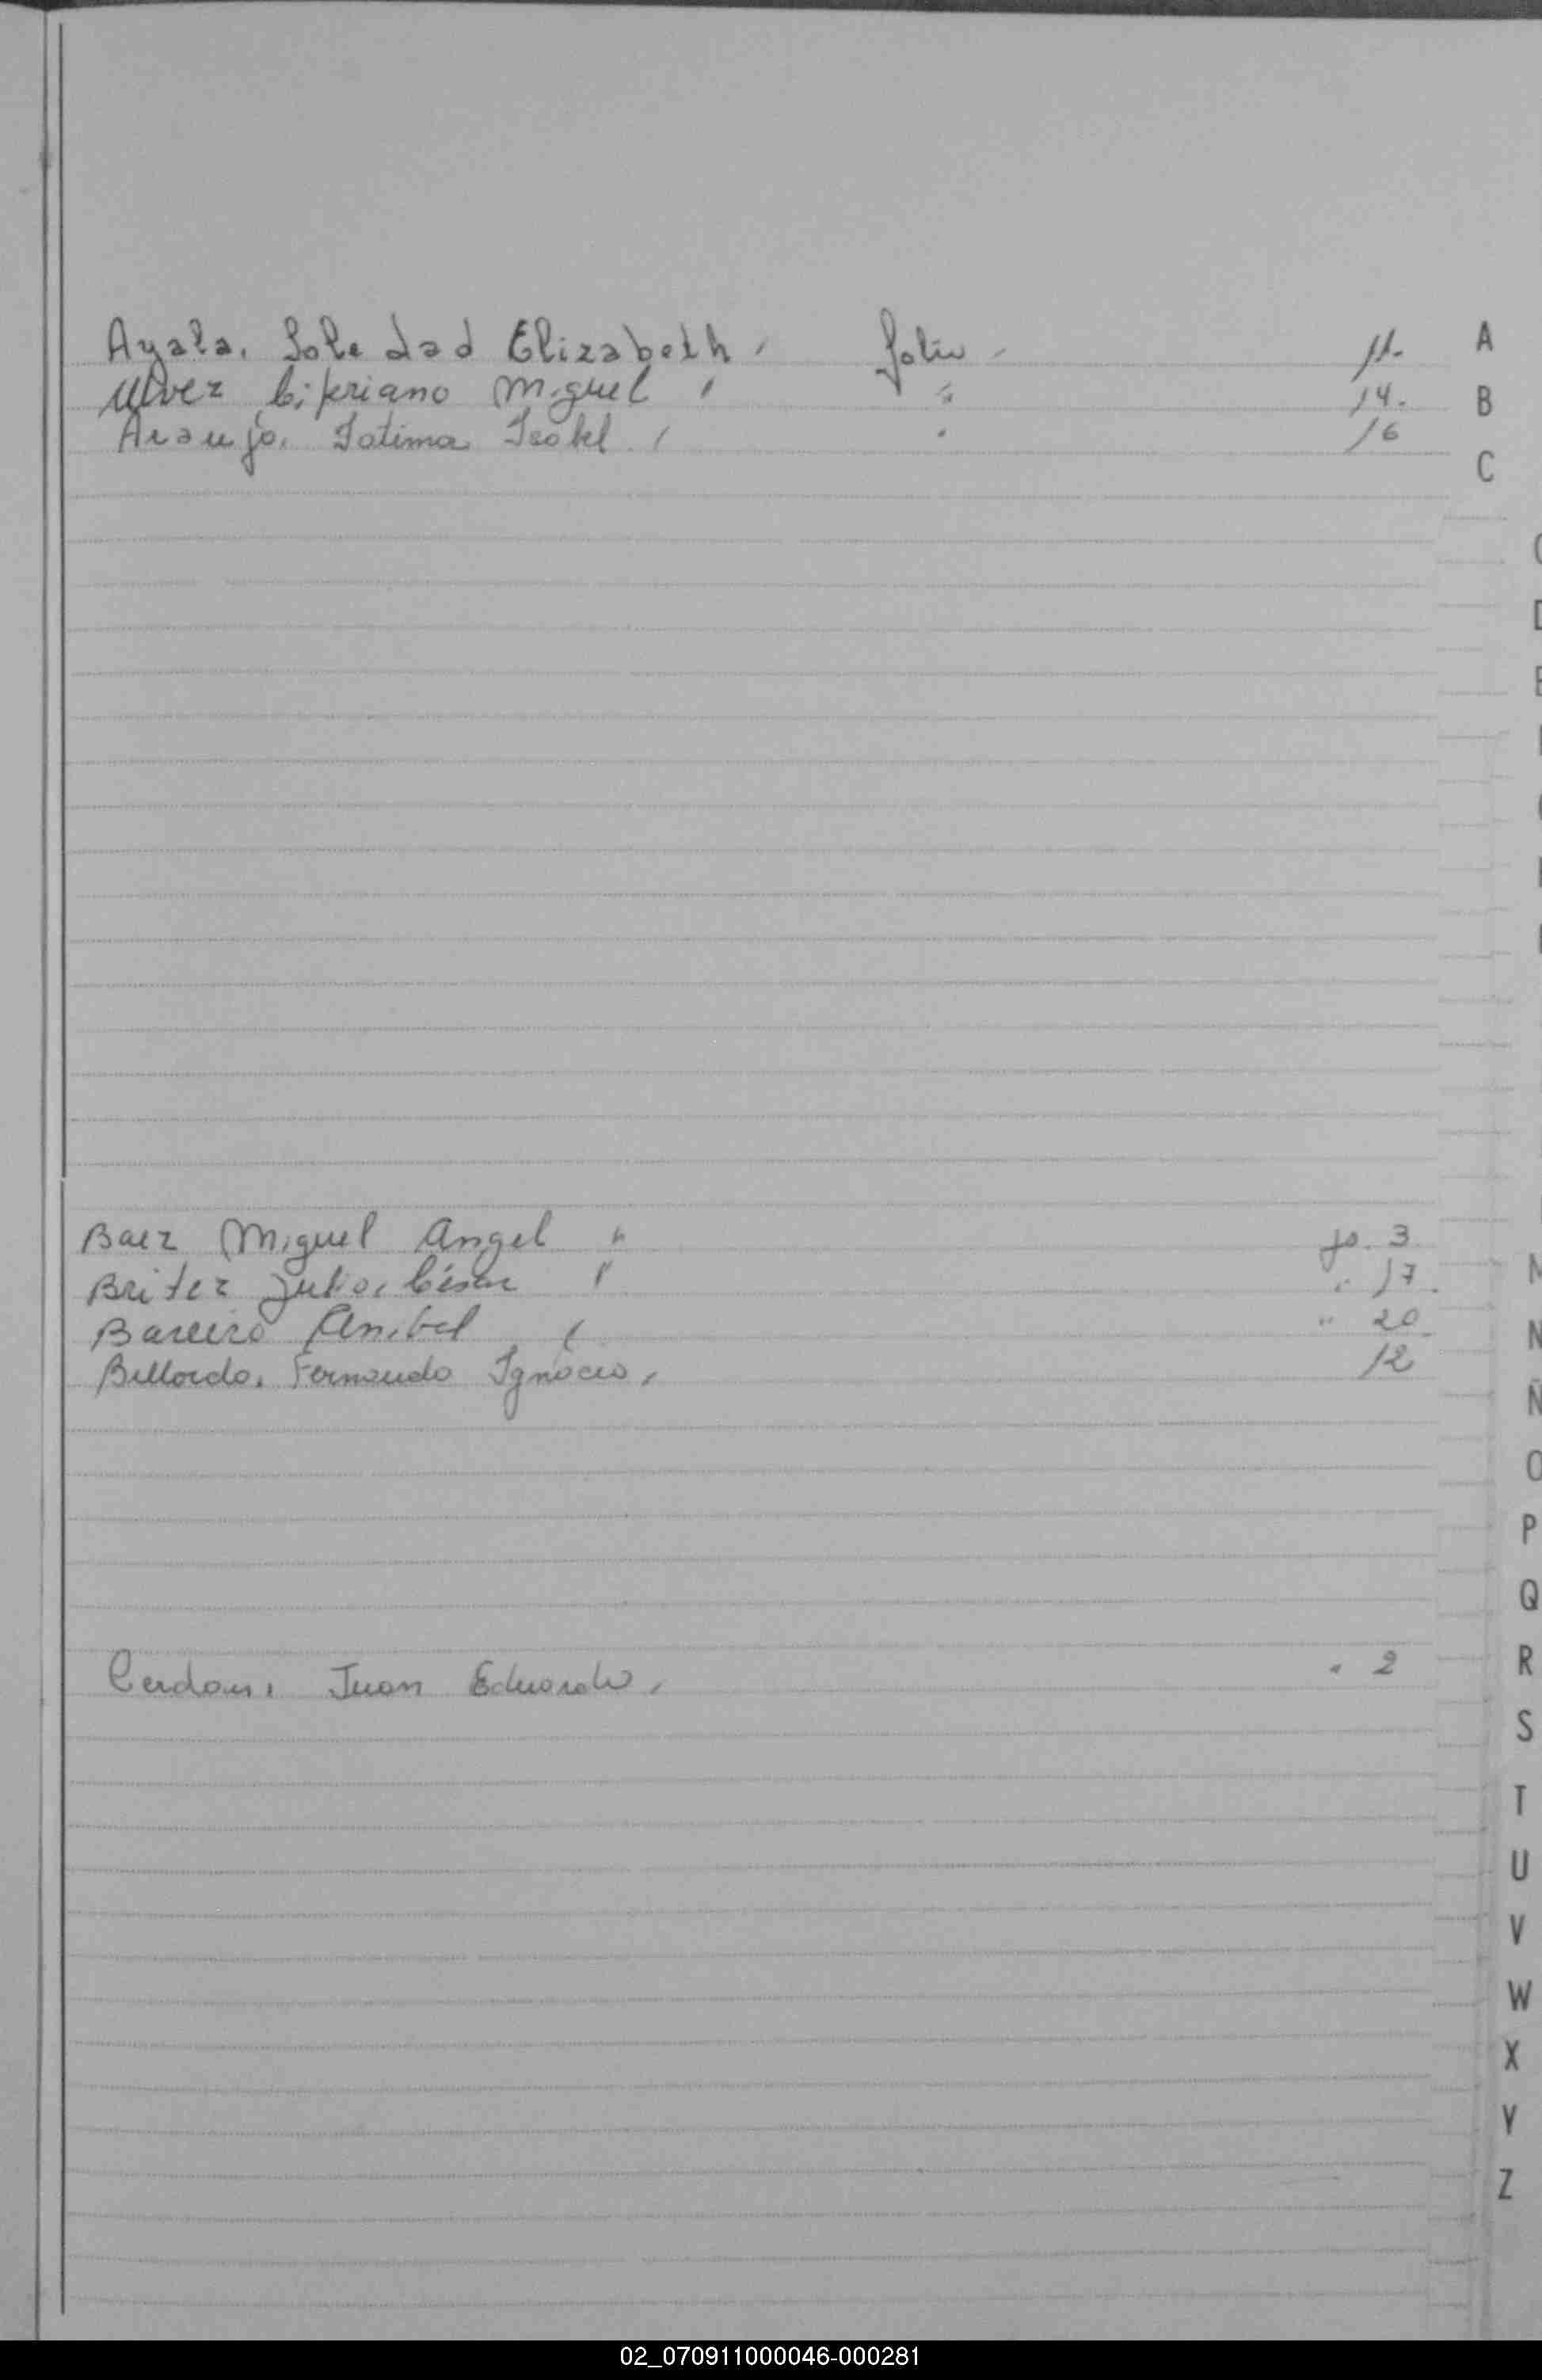 Ayala, Soledad Elizabeth, folio 11. A
Alvez Cipriano Miguel " 14. B
Araujo, Fatima Isabel 16
C
Baez Miguel Angel " fo. 3
Britez Julio, César " 17.
Bareiro Anibal " 20
Billordo, Fernando Ignacio, 12
Juan Eduardo, " 2
M
N
Ñ
O
P
Q
R
S
T
U
V
W
X
Y
Z
02_070911000046-000281